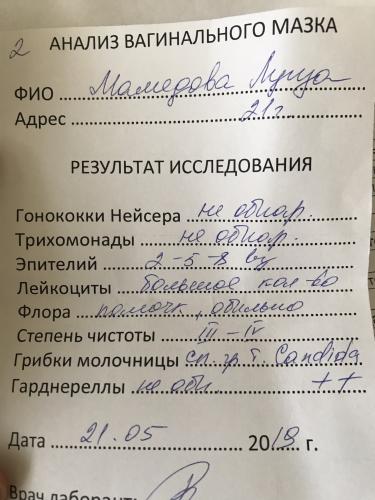 2 АНАЛИЗ ВАГИНАЛЬНОГО МАЗКА
ФИО Мамедова
Адрес 21 г.
РЕЗУЛЬТАТ ИССЛЕДОВАНИЯ
Гонококки Нейсера не обнар.
Трихомонады не обнар.
Эпителий 2-5-8
Лейкоциты большое кол-во
Флора палочк, обильно
Степень чистоты III - IV
Грибки молочницы сп. гр. т. Candida
Гарднереллы не обн. ++
Дата 21.05 2018 г.
Врач лаборант: